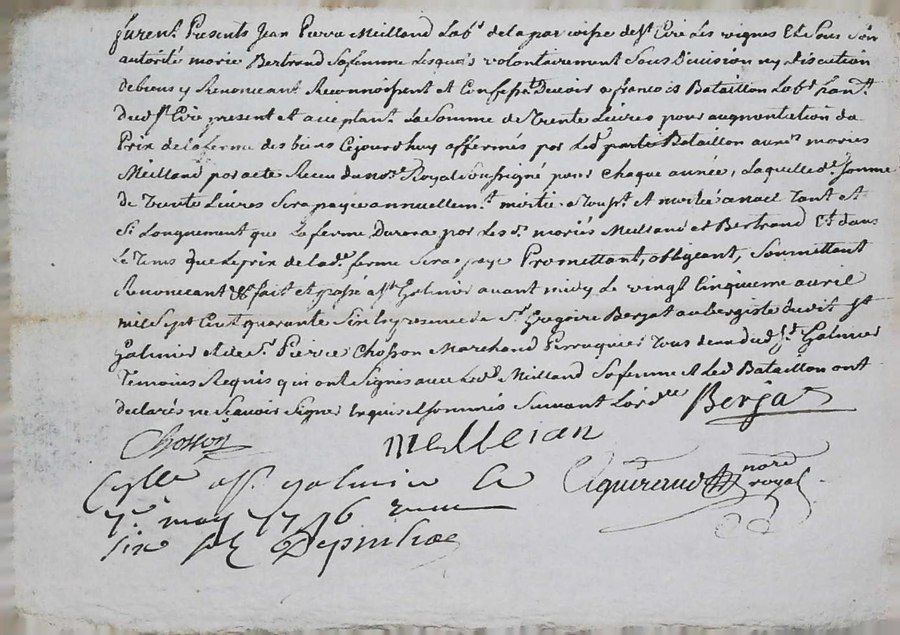 furent Presents Jean Pierre Meilland Labr de la parroisse de St Cire Les vignes Et Sous Son
autorité marie Bertrand Sa femme Lesquels volontairement Sous Division ny discution
de biens y Renonceant Reconnoissent et Confessent Devoir a francois Bataillon Labr hant
dud St Cire present et acceptant La Somme de Trente Livres pour augmentation du
Prix de la ferme des biens Cejourdhuy affermés par Led Bataillon aux mariés
Meilland par acte Receu du nore Royal Soussigné pour Chaque année, Laquelle de Somme
de Trente Livres Sera payée annuellemt moitié a Toust et moitié a noel Tant et
Si Longuement que La ferme Durera par Les ds mariés Meilland et Bertrand Et dans
Le Tems que Le prix de lade ferme Sera payé Promettant, obligeant, Soumettant
Renonceant &c fait et passé a St Galmier avant midy Le vingt Cinquieme avril
mil Sept Cent quarante Six En presence de Sr Gregoire Berjat aubergiste dudit St
Galmier et de Sr Pierre Chosson Marchand Perruquier Tous deux dud St Galmier
Temoins Requis qui ont Signés avec Led Meilland Sa femme et Led Bataillon ont
declarés ne Sçavoir Signer Enquis et Sommés Suivant Lordce Berjat
Chosson meilleian
Cylle a St galmier le Ciguiraud nore royal
7e may 1746 receu
six s